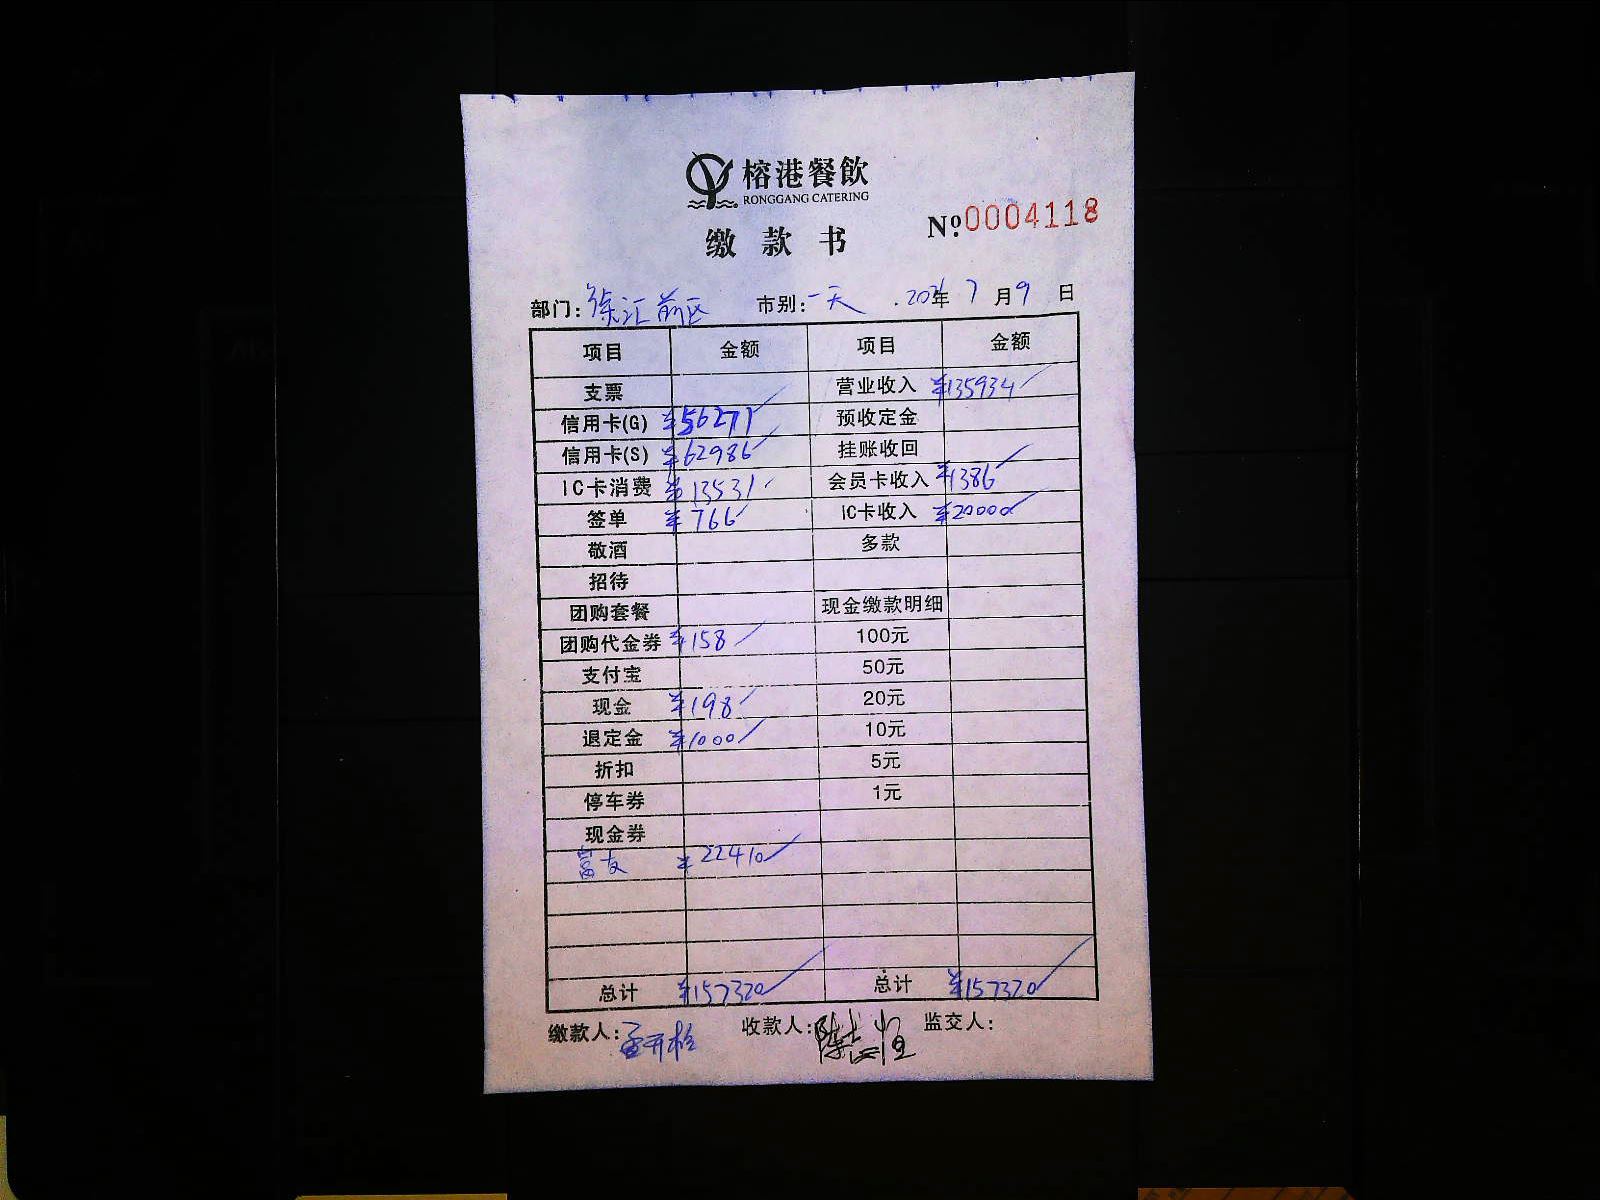 榕港餐飲
RONGGANG CATERING
缴款书
№:0004118
部门:徐汇前区 市别:一天 年 7月9日
项目 金额 项目 金额
支票 营业收入 ¥135934
信用卡(G) ¥56271 预收定金
信用卡(S) ¥62986 挂账收回
IC卡消费 ¥13531 会员卡收入 ¥1386
签单 ¥766 IC卡收入 ¥20000
敬酒 多款
招待
团购套餐 现金缴款明细
团购代金券 ¥158 100元
支付宝 50元
现金 ¥198 20元
退定金 ¥1000 10元
折扣 5元
停车券 1元
现金券
富友 ¥22410
总计 ¥157320 总计 ¥157320
缴款人: 收款人: 监交人: